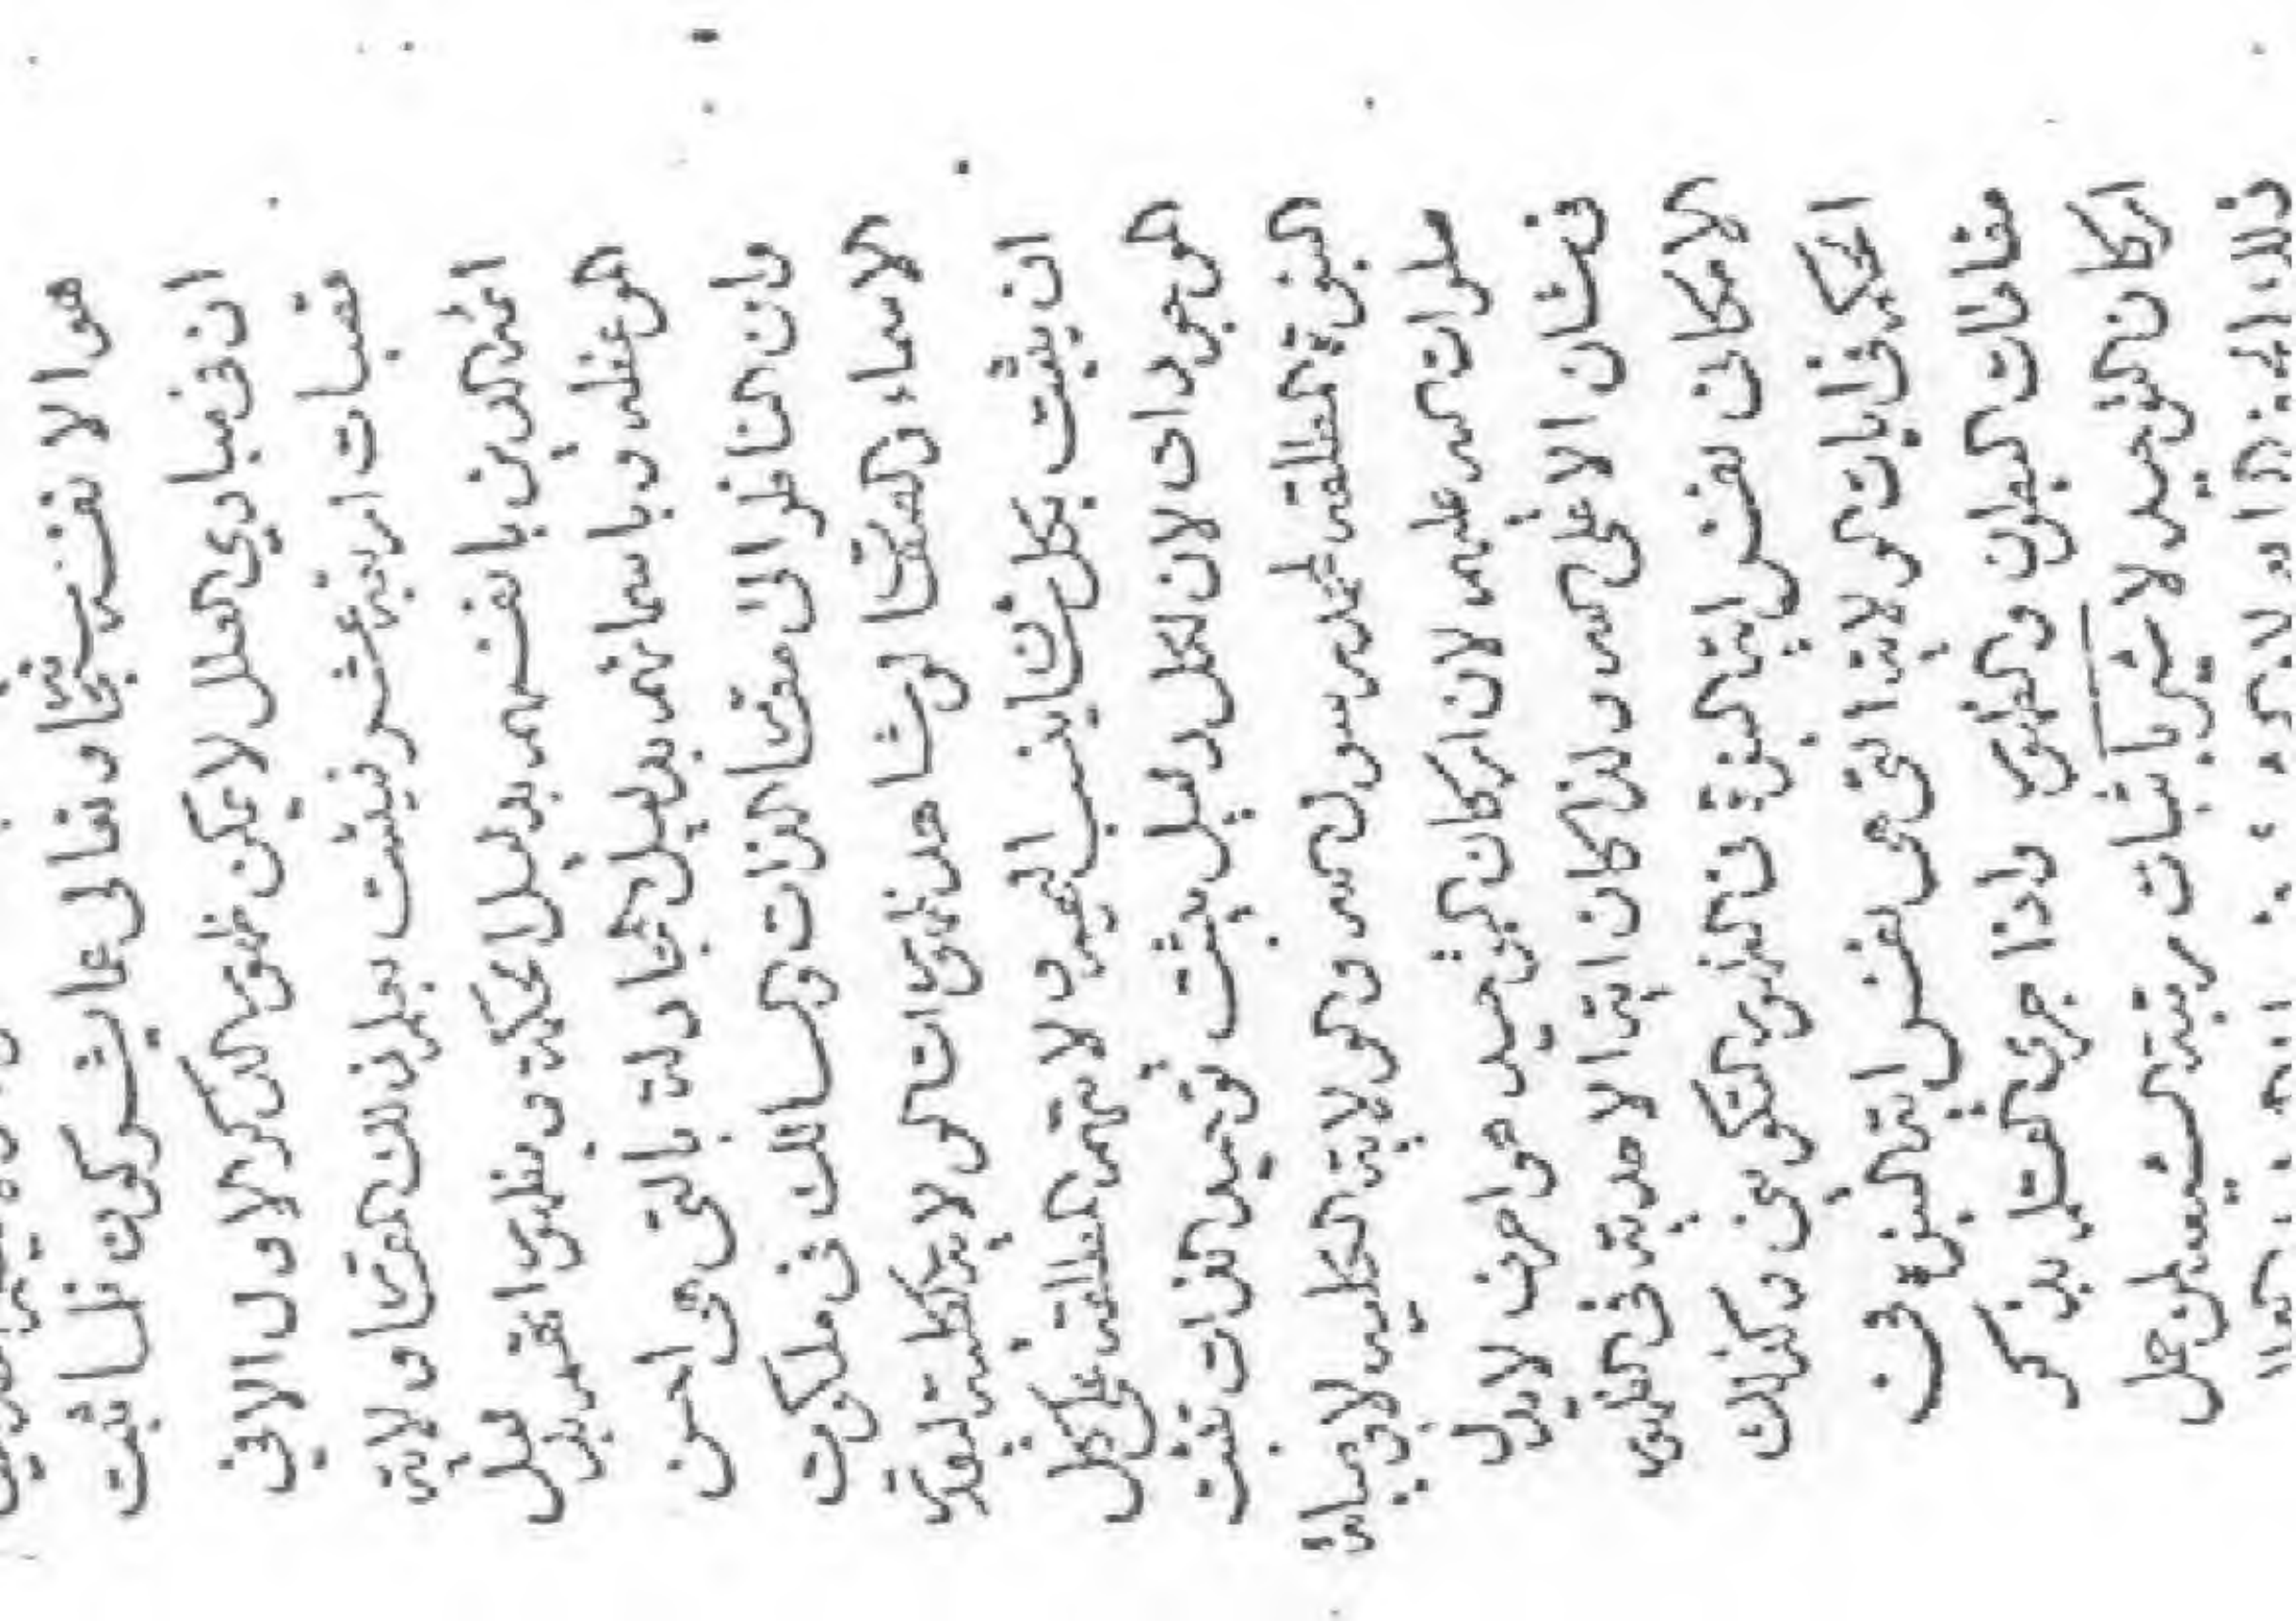 هو الا نفسه سبحانه وتعالى عما يشركون فلما ثبت
ان في مبادي العلل لا يمكن ظهور الذكر الاول الا في
قصبات اربعة عشر فيثبت بعلم ذلك المقام ولاية
ائمة الدين بانفسهم بدليل الحكمة وبظهوراتهم بدليل
الموعظة وباسمائهم بدليل المجادلة بالتي هي احسن
وان الناظر الى مقام الذات والسالك في ملكوت
الاسماء والصفات لو شاهد ظهورات الولاية
ان يثبت بكل شان ينسب اليهم ولايتهم المطلقة على كل
الموجودات لان لكل دليل يثبت توحيد الذات تثبت
النبوة المطلقة لمحمد رسول الله والولاية الكلية لاوصيائه
صلوات الله عليهم لان اركان التوحيد حرف لا يبدل
في شان الا على الله ولذا كان اية الاحدية في الظهور
الامكان نفس اية النبوة في الظهور التكوين وكذلك
الحكم في ايات الولاية التي هي نفس اية النبوة في
مقامات البطون والظهور واذا جرى القلم بذكر
اركان التوحيد لاشير باثبات رتبة الشيعة لمن حل